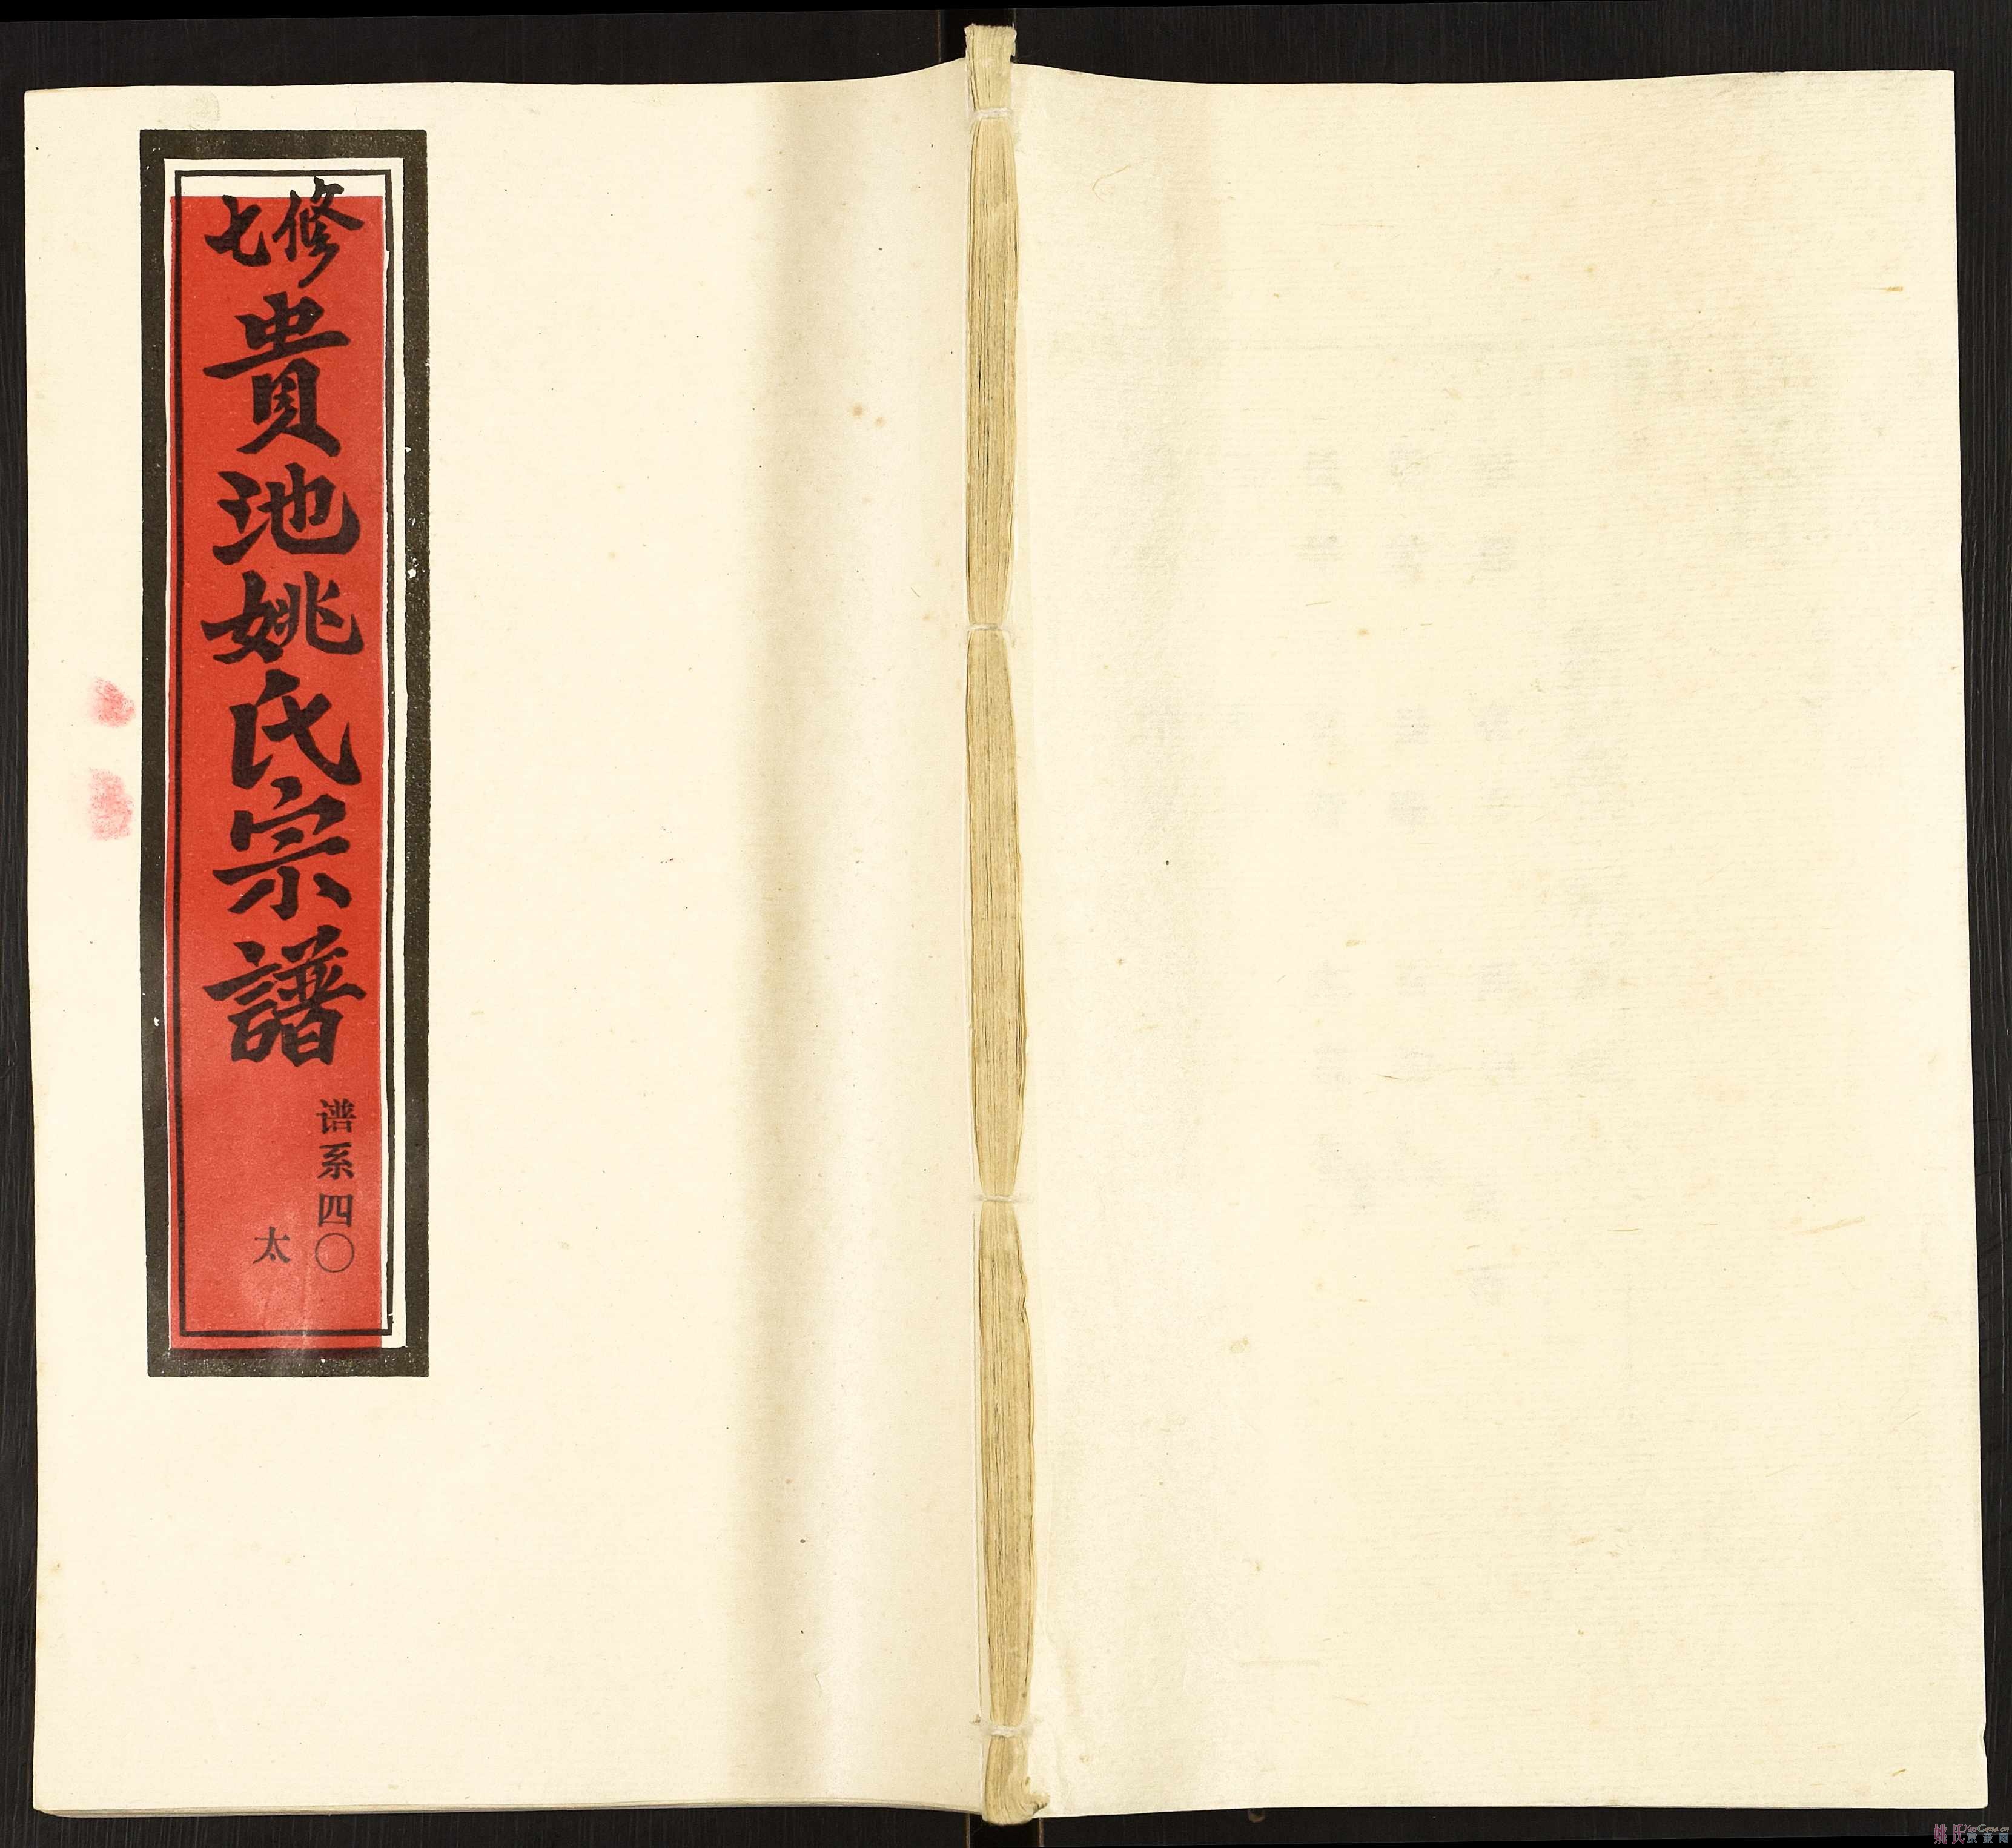 七修
貴池姚氏宗譜
谱系四〇
太
姚氏
YaoGens.cn